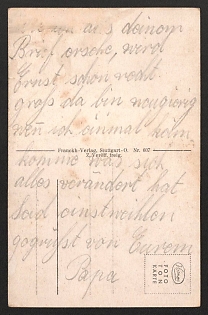 aus deinem
Brief ersehe, wird
Ernst schon recht
groß da bin neugierig
wen ich einmal
Franckh-Verlag, Stuttgart-O. Nr. 607
komme was sich
alles verändert hat
Seid einstweilen
gegrüßt von Eurem
Papa
FOTO
TON
KARTE